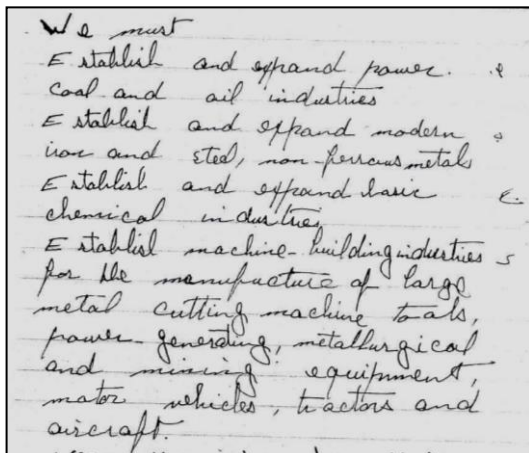 We must
Establish and expand power.
coal and oil industries
Establish and expand modern
iron and steel, non-ferrous metals
Establish and expand basic
chemical industries
Establish machine-building industries
for the manufacture of large
metal cutting machine tools,
power-generating, metallurgical
and mining equipment,
motor vehicles, tractors and
aircraft.